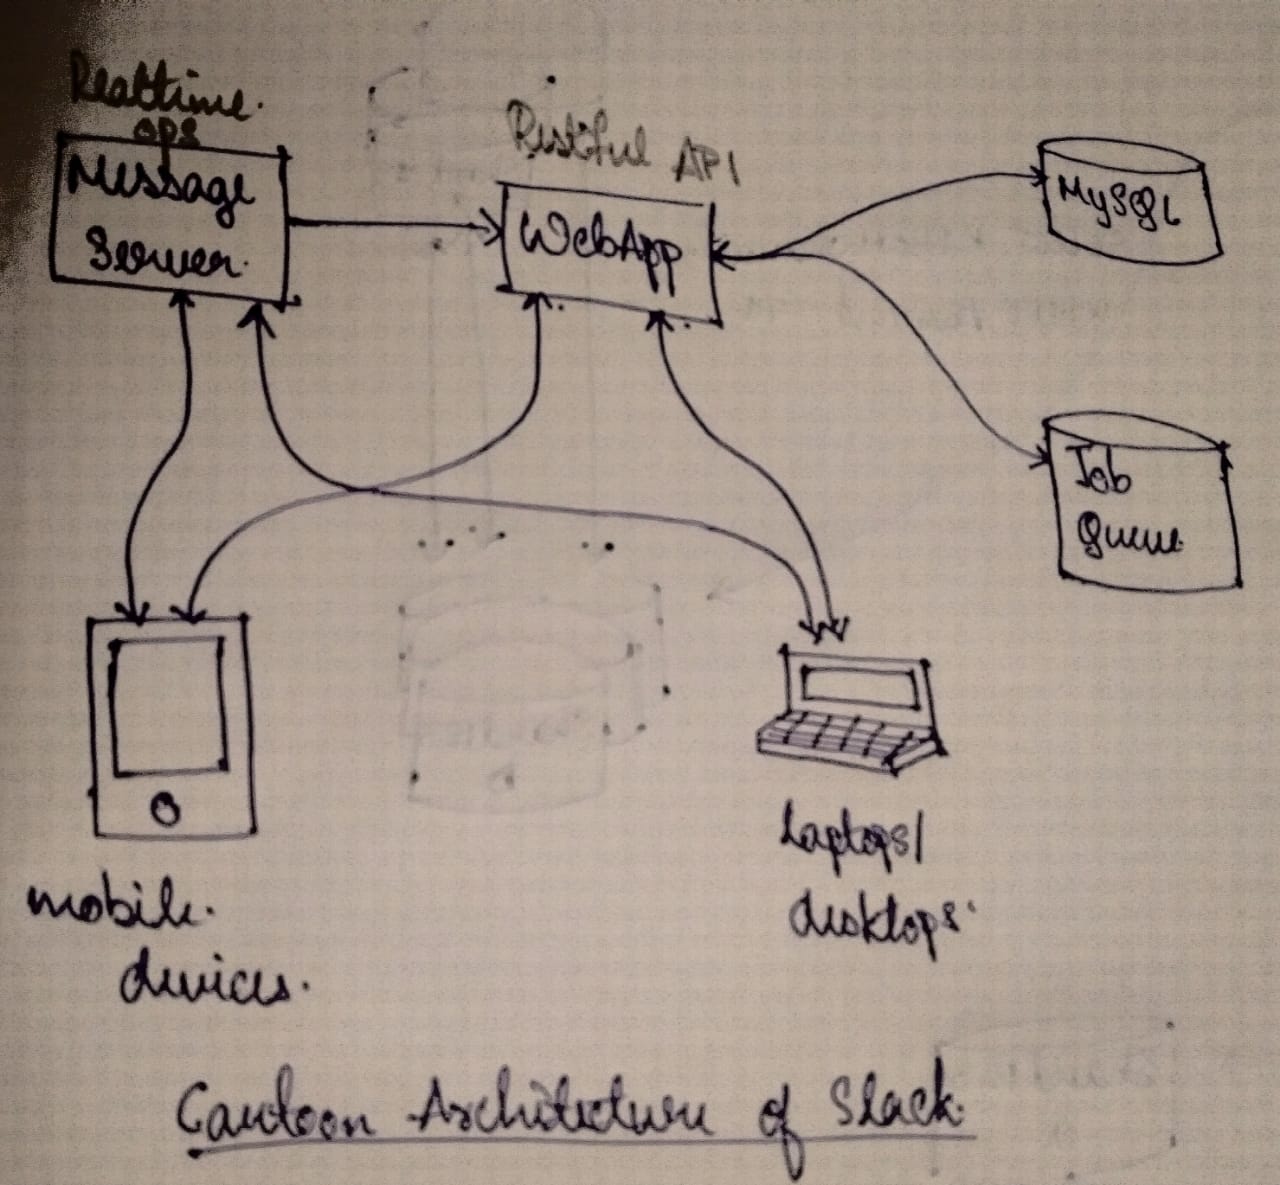 Realtime.
ops
Message
Server.
Restful API
WebApp
MySQL
Job
Queue
mobile.
devices.
Laptops/
desktops.
Cartoon Architecture of Slack.